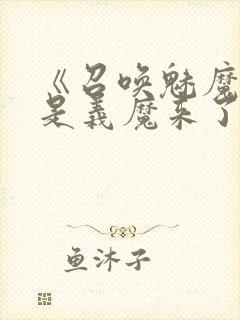 《召唤魅魔
是义魔来了
鱼沐子